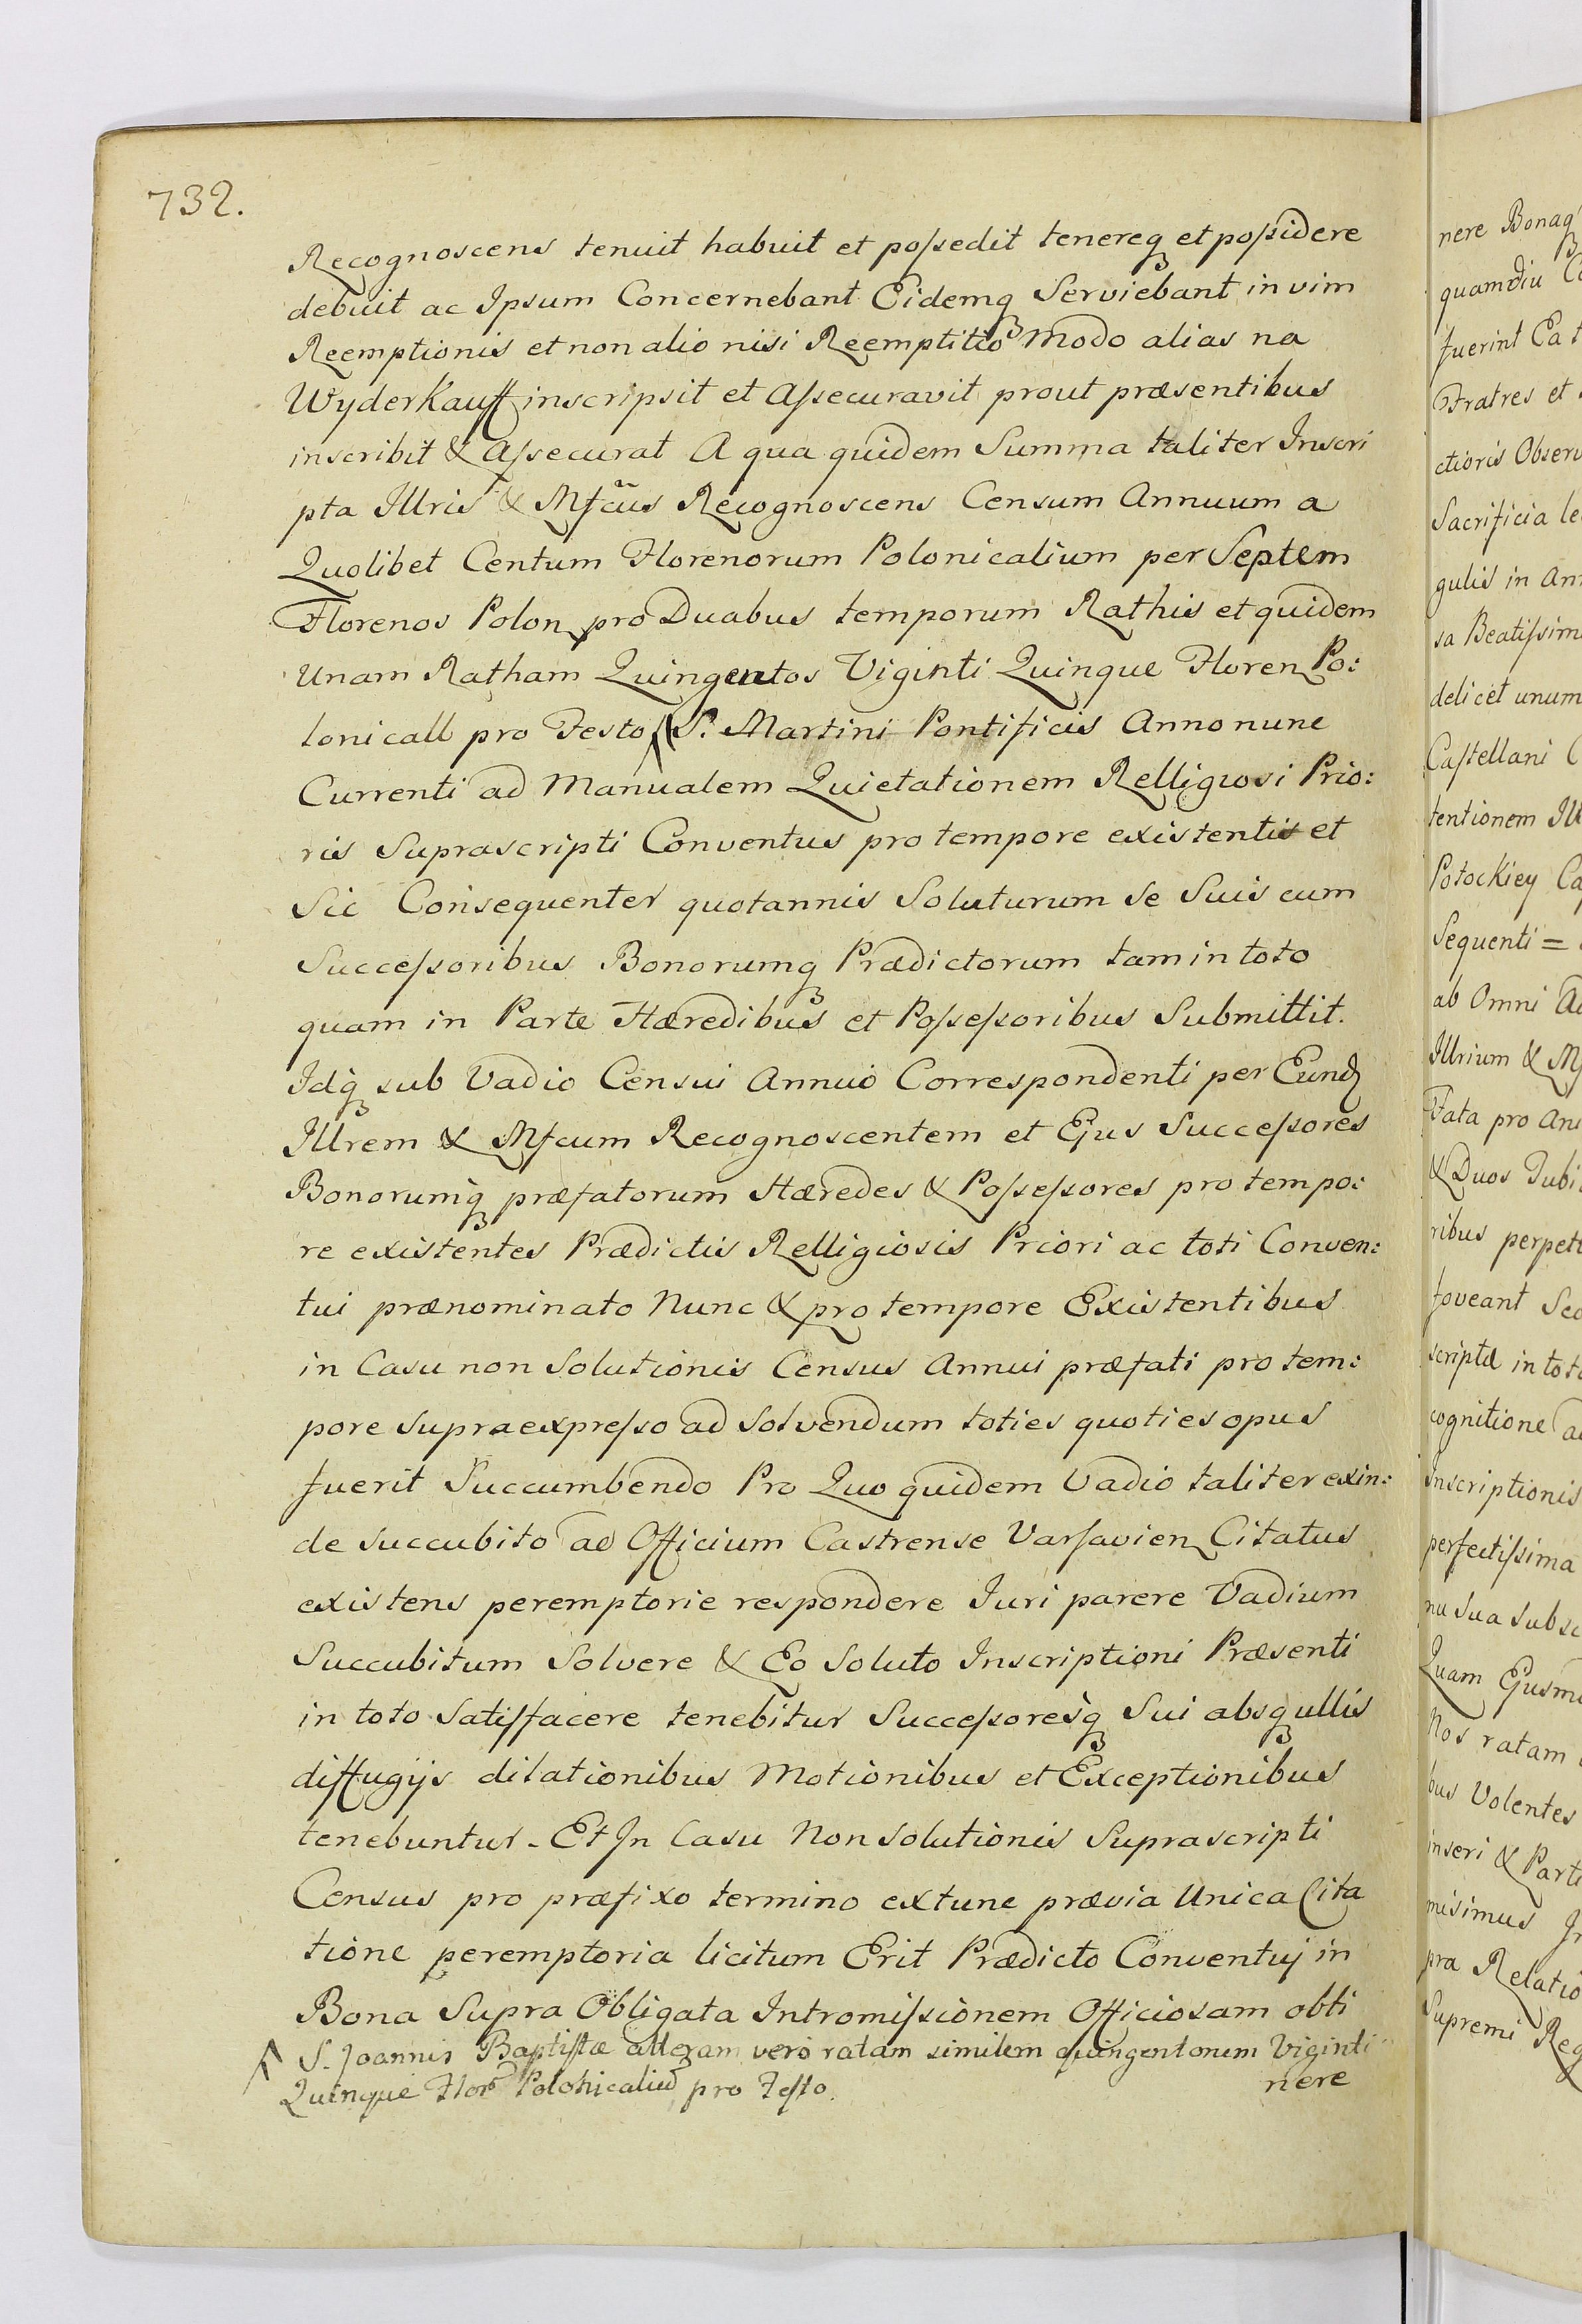 732.
Recognoscens tenuit habuit et possedit tenereq et possidere
debuit ac Ipsum Concernebant Eidemq Serviebant in vim
Reemptionis et non alio nisi Reemptitio Modo alias na
Wyderkauff inscripsit et Assecuravit prout præsentibus
inscribit & Assecurat A qua quidem Summa taliter Inscri
pta Illris & Mfcus Recognoscens Censum Annuum a
Quolibet Centum Florenorum Polonicalium per Septem
Florenos Polon pro Duabus temporum Rathis et quidem
Unam Ratham Quingentos Viginti Quinque Floren Po:
lonicall pro Festo S. Martini Pontificis Anno nunc
Currenti ad Manualem Quietationem Relligiosi Prio:
ris Suprascripti Conventus pro tempore existentis et
Sic Consequenter quotannis Soluturum Se Suis cum
Successoribus Bonorumq Prædictorum tam in toto
quam in Parte Hæredibus et Possessoribus Submittit.
Idq sub Vadio Censui Annuo Correspondenti per Eund
Illrem & Mfcum Recognoscentem et Ejus Successores
Bonorumq præfatorum Hæredes & Possessores pro tempo:
re existentes Prædictis Relligiosis Priori ac toti Conven:
tui prænominato Nunc & pro tempore Existentibus
in Casu non Solutionis Census Annui præfati pro tem:
pore supraexpresso ad Solvendum toties quoties opus
fuerit Succumbendo Pro Quo quidem Vadio taliter exin:
de succubito ad Officium Castrense Varsavien Citatus
existens peremptorie respondere Iuri parere Vadium
Succubitum Solvere & Eo Soluto Inscriptioni Præsenti
in toto Satisfacere tenebitur Successoresq Sui absq ullis
diffugijs dilationibus Motionibus et Exceptionibus
tenebuntur - Et In Casu Non Solutionis Suprascripti
Census pro præfixo termino extunc prævia Unica Cita
tione peremptoria licitum Erit Prædicto Conventuj in
Bona Supra Obligata Intromissionem Officiosam obti
S. Joannis Baptistæ alteram vero ratam similem quingentorum Viginti
Quinque Flor Polonicaliu pro Festo.
nere
nere Bonaq
quamdiu
fuerint Ea
Fratres et
ctioris Observ
Sacrificia le
gulis in An
sa Beatissim
delicet unum
Castellani C
tentionem Ill
Potockiey Ca
Sequenti =
ab Omni
Illrium & M
Fata pro An
& Duos Dubi
ribus perpet
foveant Sec
scriptæ in tot
cognitione a
Inscriptionis
perfectissima
nu Sua Subsc
Quam Ejusm
Nos ratam
bus Volentes
inseri & Part
misimus In
pra Relatio
Supremi Reg